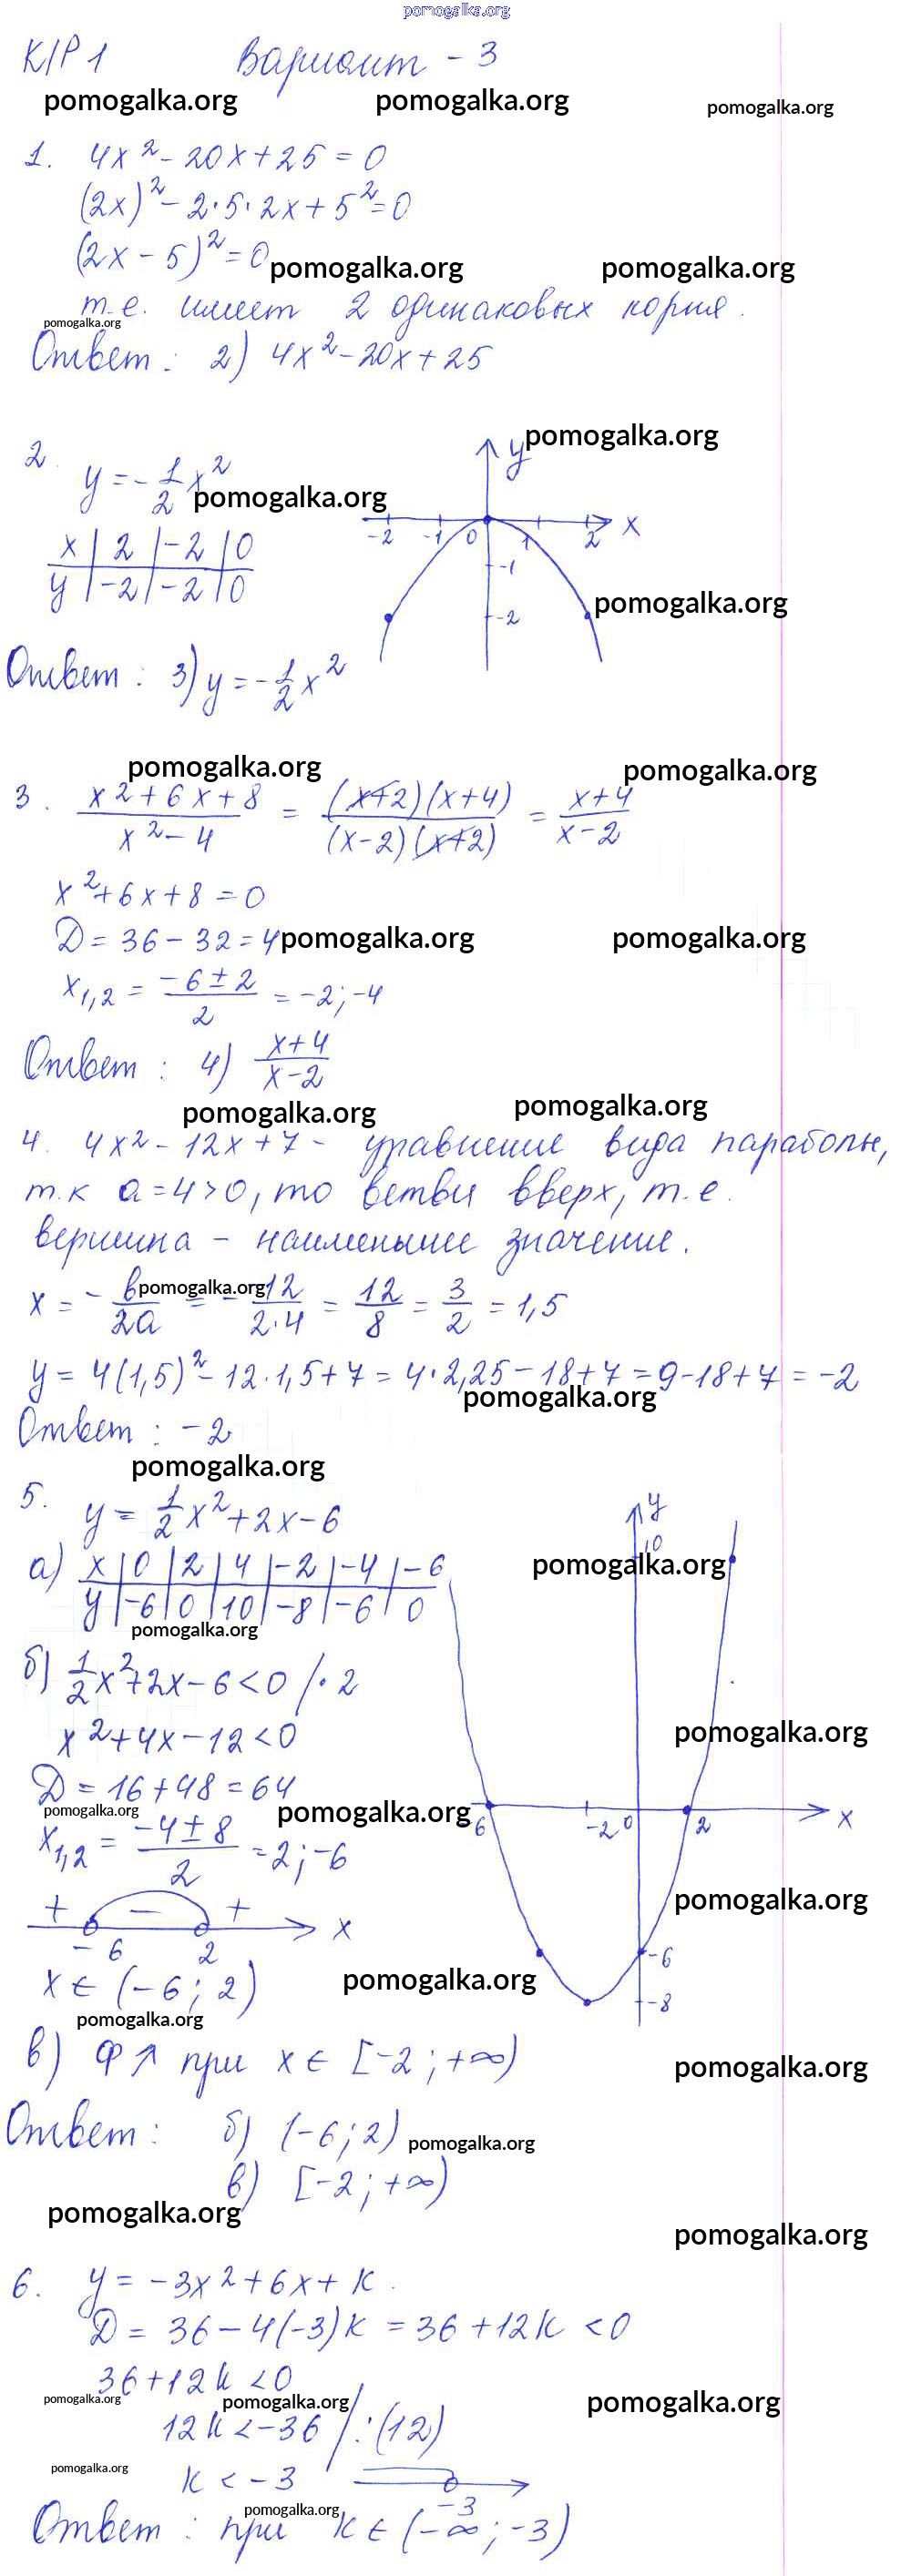 pomogalka.org
К/Р 1 Вариант - 3
pomogalka.org pomogalka.org pomogalka.org
1. 4x² - 20x + 25 = 0
(2x)² - 2·5·2x + 5² = 0
(2x - 5)² = 0 pomogalka.org pomogalka.org
т.е. имеет 2 одинаковых корня.
pomogalka.org
Ответ: 2) 4x² - 20x + 25
pomogalka.org
2. y = - 1/2 x² pomogalka.org
y x -2 -1 0 1 2 -1 -2
x | 2 | -2 | 0
y | -2 | -2 | 0
pomogalka.org
Ответ: 3) y = - 1/2 x²
pomogalka.org pomogalka.org
3. (x² + 6x + 8)/(x² - 4) = ((x+2)(x+4))/((x-2)(x+2)) = (x+4)/(x-2)
x² + 6x + 8 = 0
Д = 36 - 32 = 4 pomogalka.org pomogalka.org
x1,2 = (-6 ± 2)/2 = -2; -4
Ответ: 4) (x+4)/(x-2)
pomogalka.org pomogalka.org
4. 4x² - 12x + 7 - уравнение вида параболы,
т.к a = 4 > 0, то ветви вверх, т.е.
вершина - наименьшее значение.
x = - b/2a = - -12/2·4 = 12/8 = 3/2 = 1,5
pomogalka.org
y = 4(1,5)² - 12·1,5 + 7 = 4·2,25 - 18 + 7 = 9 - 18 + 7 = -2
pomogalka.org
Ответ: -2
pomogalka.org
5. y = 1/2 x² + 2x - 6
y 10 x -6 -2 0 2 -6 -8
pomogalka.org
а) x | 0 | 2 | 4 | -2 | -4 | -6
y | -6 | 0 | 10 | -8 | -6 | 0
pomogalka.org
б) 1/2 x² + 2x - 6 < 0 / · 2
x² + 4x - 12 < 0 pomogalka.org
Д = 16 + 48 = 64
pomogalka.org pomogalka.org
x1,2 = (-4 ± 8)/2 = 2; -6
+ - + x pomogalka.org
-6 2
x ∈ (-6; 2) pomogalka.org
pomogalka.org
в) Ф ↗ при x ∈ [-2; +∞) pomogalka.org
Ответ: б) (-6; 2) pomogalka.org
в) [-2; +∞)
pomogalka.org pomogalka.org
6. y = -3x² + 6x + k.
Д = 36 - 4(-3)k = 36 + 12k < 0
36 + 12k < 0
pomogalka.org pomogalka.org pomogalka.org
12k < -36 / :(12)
pomogalka.org
k < -3
-3
pomogalka.org
Ответ: при k ∈ (-∞; -3)